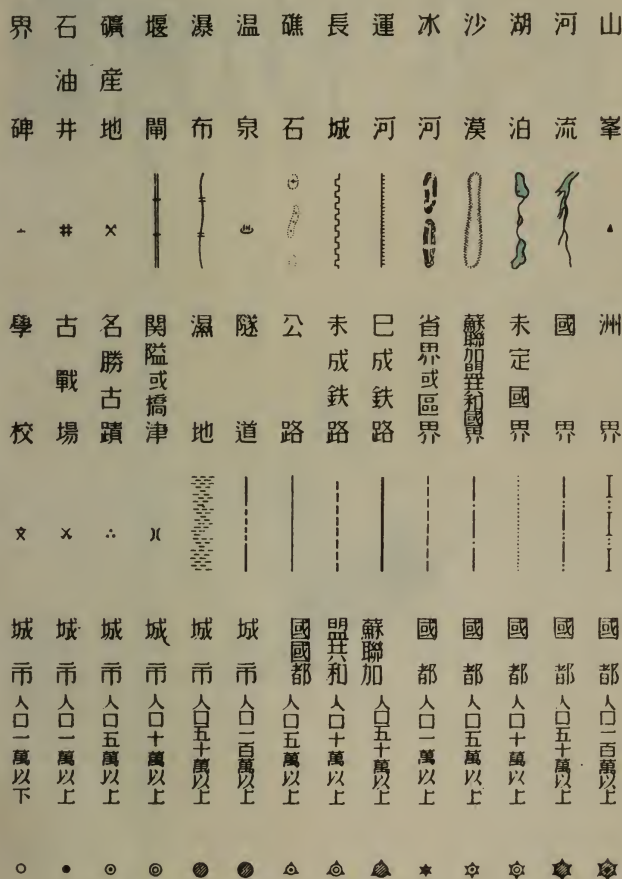 山峯
河流
湖泊
沙漠
冰河
運河
長城
礁石
温泉
瀑布
堰閘
礦産地
石油井
界碑
洲界
國界
未定國界
蘇聯加盟共和國界
省界或區界
已成鉄路
未成鉄路
公路
隧道
濕地
関隘或橋津
名勝古蹟
古戰場
學校
國都人口一百萬以上
國都人口五十萬以上
國都人口十萬以上
國都人口五萬以上
國都人口一萬以上
蘇聯加盟共和國國都
人口五十萬以上
人口十萬以上
人口五萬以上
城市人口一百萬以上
城市人口五十萬以上
城市人口十萬以上
城市人口五萬以上
城市人口一萬以上
城市人口一萬以下